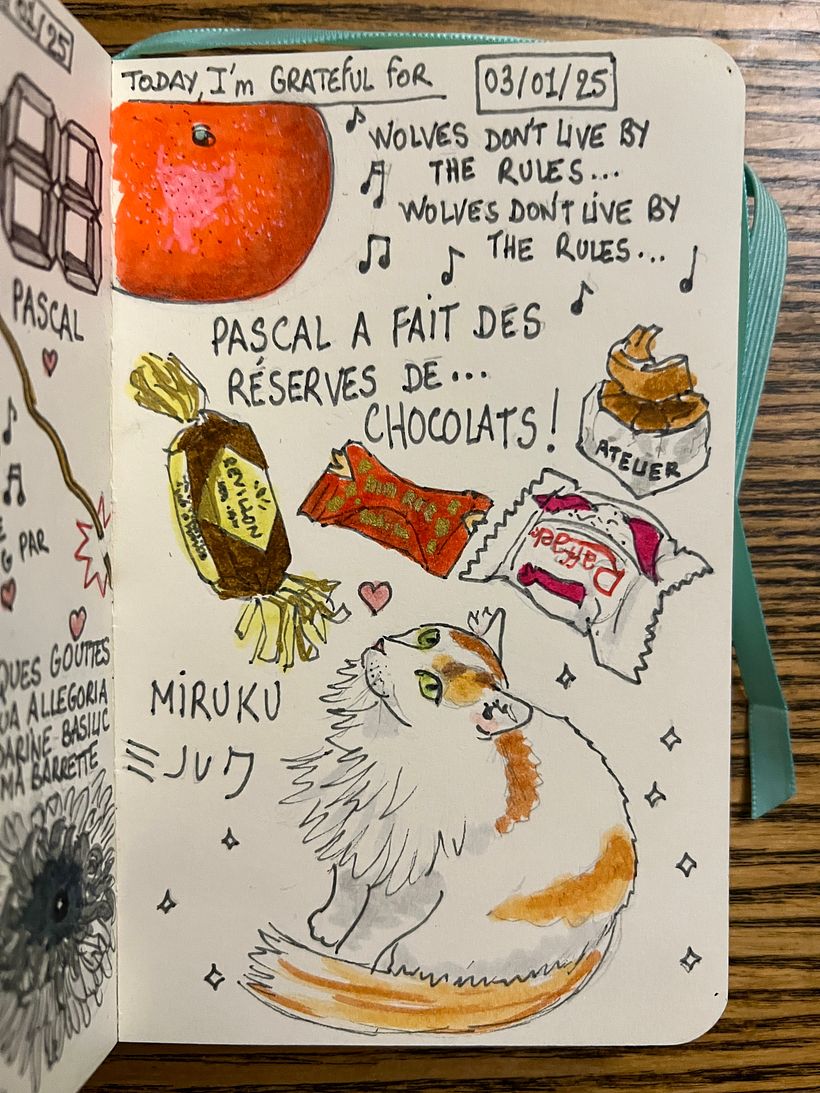 /25
PASCAL
G PAR
QUES GOUTTES
UA ALLEGORIA
DARINE-BASILIC
MA BARRETTE
TODAY, I'm GRATEFUL FOR
03/01/25
WOLVES DON'T LIVE BY
THE RULES...
WOLVES DON'T LIVE BY
THE RULES...
PASCAL A FAIT DES
RÉSERVES DE...
CHOCOLATS!
ATELIER
REVILLON
Raffaell
MiRUKU
ミルク